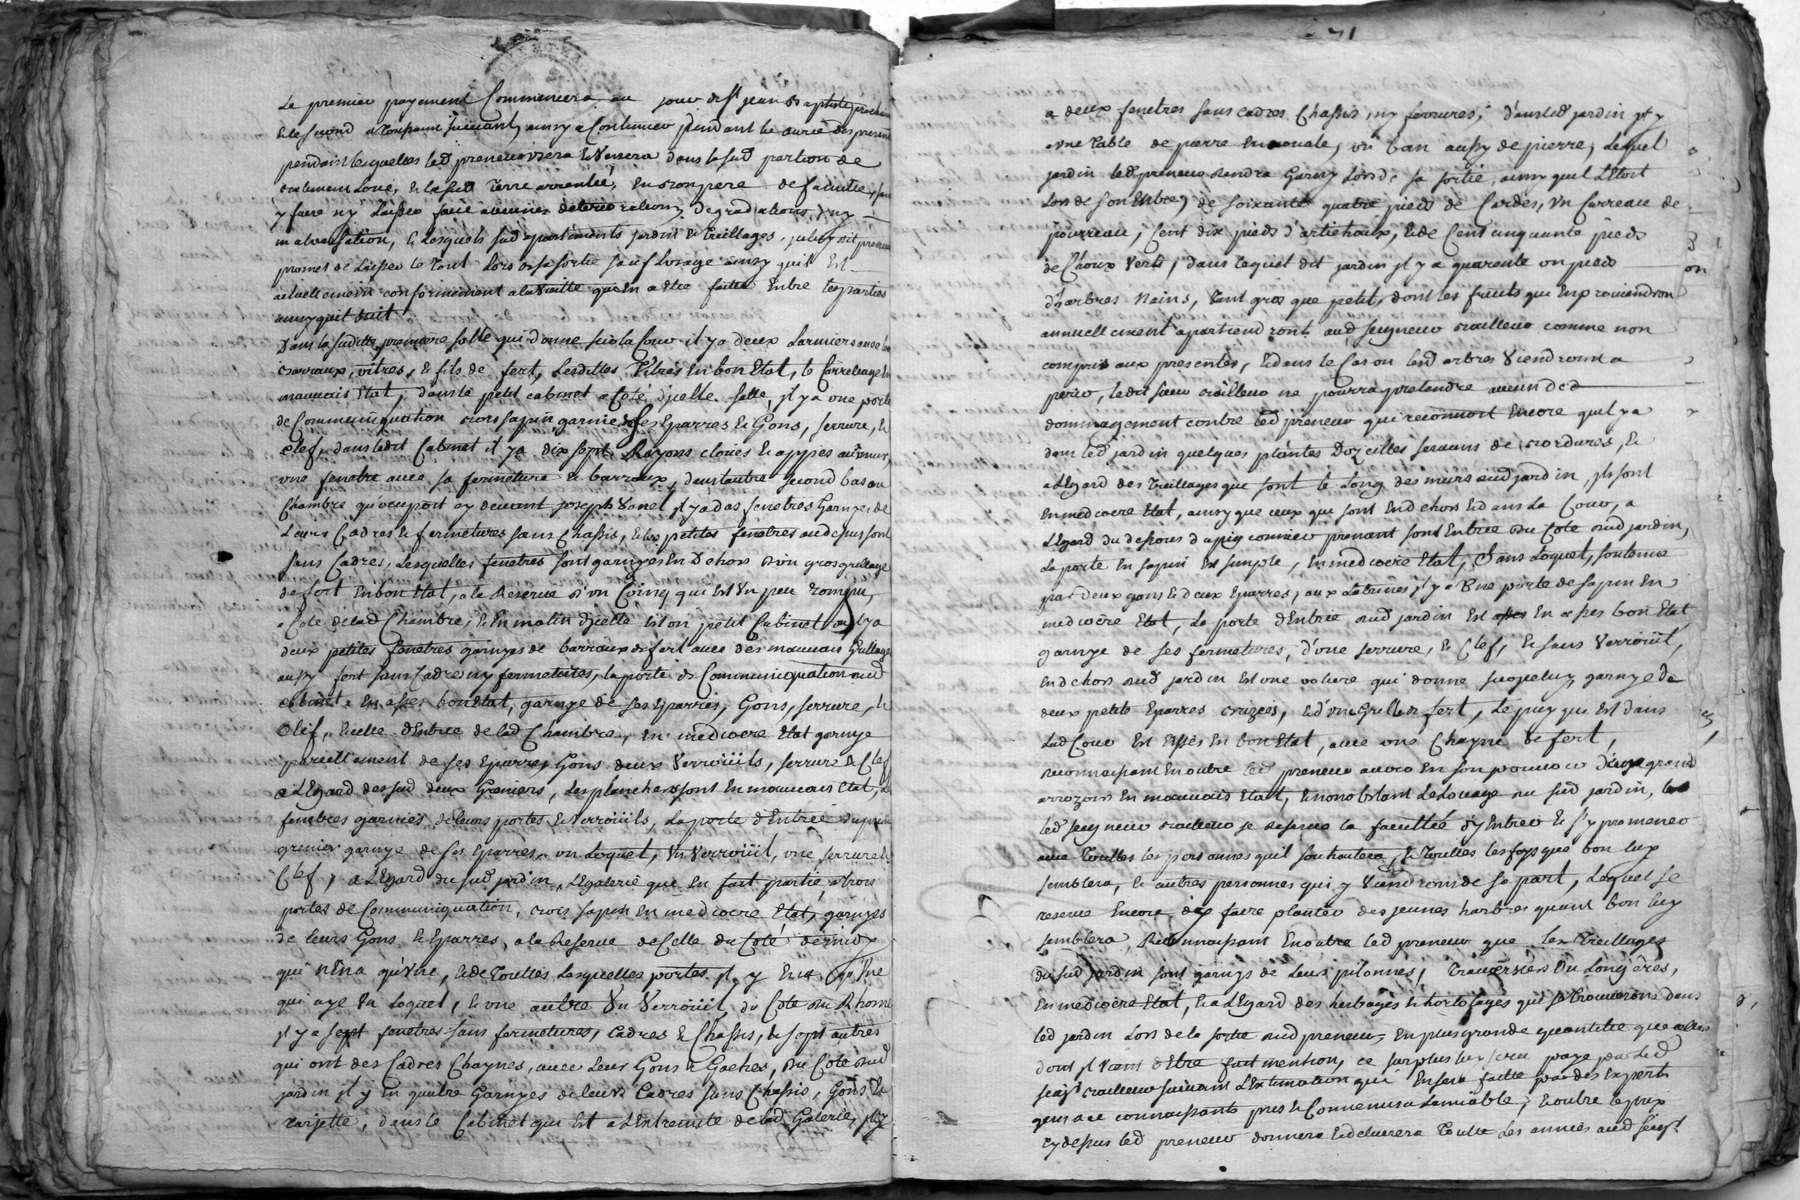 Le premier payement Commencera au jour de St jean Baptiste prochain
& le second a Toussaint suivant, ainsy a Continuer pendant la durée des presentes
pendant lesquelles led preneur usera & Versera dans lasud portion de
& lasud Terre arrentée, en bon pere de famille, sans
y faire ny Laisser faire aucunes deteriorations, degradations, ny
malversation, & lesquels sud apartements jardin & Treillages, led preneur
promet de Laisser le Tout Lors de sa sortie sauf Lusage ainsy quil Est
actuellement conformement a la Visitte qui en a Etté faitte Entre les parties
ainsy quil suit
Dans lasuditte premiere salle qui donne sur la Cour il y a deux Larmiers avec leur
barraux, vitres, & fils de fert, Lesdittes Vitres En bon Etat, le Carrelage En
mauvais Etat, dans le petit cabinet a Coté d'icelle salle, il y a une porte
de Communiquation bois sapin garnie de ses Eparres & Gons, serrure, &
clef, dans ledit Cabinet il y a dix sept Rayons cloués & appyés au mur,
une fenetre avec sa fermeture & barraux, dans lautre second bas ou
Chambre qu'occupoit cy devant joseph Vanel, il y a des fenetres Garnyes de
Leurs Cadres & fermetures sans Chassis, & les petites fenetres au dessus sont
sans Cadres, Lesquelles fenetres sont garnyes En Dehors d'un gros grillage
de fert En bon Etat, a la Reserve d'un Coing qui est Un peu rompu,
a Coté de lad Chambre, & En matin d'icelle est un petit Cabinet ou il y a
deux petites fenetres garnyes de barraux de fert avec des mauvais Grillage
aussy fert sans Cadres ny fermetures, la porte de Communiquation aud
cabinet Est En asses bon Etat, garnye de ses Eparres, Gons, serrure, &
Clef, & celle d'Entrée de lad Chambre, En mediocre Etat garnye
pareillement de ses Eparres, Gons deux Verroüils, serrure & Clef
a L'Egard des sud deux Greniers, Les planchers sont En mauvais Etat, Les
fenetres garnies de leurs portes & Verroüils, La porte d'Entrée du premier
grenier garnye de ses Eparres, un Loquet, Un Verroüil, une serrure &
Clef, a L'Egard du sud jardin, & Galerie qui En fait partie, a trois
portes de Communiquation, bois sapin En mediocre Etat, garnyes
de leurs Gons & Eparres, a la Reserve de Celle du Coté
qui n'En a qu'Une, & de Touttes Lesquelles portes il y En a qu'Une
qui aye Un Loquet, & une autre Un Verroüil, du Coté du Rhone
il y a sept fenetres sans fermetures, Cadres & Chassis, & sept autres
qui ont des Cadres Chaynes, avec Leur Gons & Gaches, du Coté dud
jardin il y En quatre Garnyes de leurs Cadres sans Chassis, Gons &
Targette, dans le Cabinet qui Est a L'Extremité de lad Galerie, il y
71
a deux fenetres sans cadres Chassis, ny ferrures; dans led jardin il y
a une Table de pierre En ovale, un ban aussy de pierre, Lequel
jardin led preneur Rendra Garny Lors de sa sortie, ainsy quil L'Etoit
Lors de son Entrée, de soixante quatre pieds de Cardes, Un Carreau de
pourreau, Cent dix pieds d'artichaux, & de Cent cinquante pieds
de Choux Verts, dans lequel dit jardin il y a quarente un pieds
d'arbres Nains, Tant gros que petit, dont les fruits qui En proviendron
annuellement apartiendront aud seigneur bailleur comme non
compris aux presentes, & dans le Cas ou lesd arbres Viendroint a
perir, ledit sieur bailleur ne pourra pretendre aucun ded
dommagement contre led preneur qui reconnoit Encore quil y a
dans led jardin quelques plantes Dozeilles servans de bordures, &
a L'Egard des Treillages qui sont le Long des murs dud jardin ils sont
En mediocre Etat, ainsy que ceux qui sont En dehors & dans La Cour, a
L'Egard du dessous
La porte En sapin Est simple, En mediocre Etat, Sans Loquet, soutenue
par deux gons & deux Eparres, aux Latrines il y a Une porte de sapin En
mediocre Etat, La porte d'Entrée dud jardin Est En asses bon Etat
garnye de ses fermetures, d'une serrure, & Clef, & sans Verroüil,
En dehors dud jardin Est une voliere qui donne sur celuy, garnye de
deux petite Eparres croizées, & d'un Grille de fert, Le puy qui Est dans
Lad Cour Est Asses En bon Etat, avec une Chayne de fert,
Reconnoissant En outre led preneur avoir En son pouvoir Deux grand
arrozoirs En mauvais Etat, & nonobstant Le Louage du sud jardin, le
led seigneur bailleur se reserve la faculté d'y Entrer & s'y promener
avec Touttes les personnes quil souhaitera, & Touttes les foys que bon luy
semblera, & autres personnes qui y Viendront de sa part, Lequel se
reserve Encore d'y faire planter des jeunes harbres quant bon luy
semblera, Reconnoissant En outre led preneur que les Treillages
du sud jardin sont garnys de Leurs pilonnes, Traversiers Ou Longéres,
En mediocre Etat, & a L'Egard des herbages & hortolages qui se trouveront dans
led jardin Lors de la sortie dud preneur, En plus grande quantitée que celles
dont il vient d'Etre fait mention, ce surplus luy sera payé par led
seigr bailleur suivant L'Extimation qui En sera faitte par des Experts
gens a ce connoissants pris & Convenus a Lamiable, & outre le prix
cy dessus led preneur donnera & delivrera Toutte Les années aud seigr